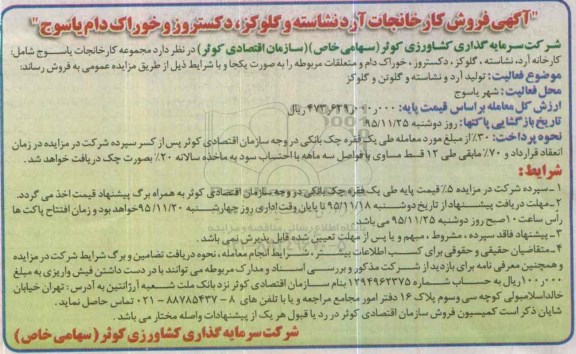 "آگهی فروش کارخانجات آرد نشاسته و گلوکز، دکستروز و خوراک دام یاسوج"
شرکت سرمایه گذاری کشاورزی کوثر (سهامی خاص) (سازمان اقتصادی کوثر) در نظر دارد مجموعه کارخانجات یاسوج شامل:
کارخانه آرد، نشاسته، گلوکز، دکستروز، خوراک دام و متعلقات مربوطه را به صورت یکجا و با شرایط ذیل از طریق مزایده عمومی به فروش رساند:
موضوع فعالیت: تولید آرد و نشاسته و گلوتن و گلوکز
محل فعالیت: شهر یاسوج
ارزش کل معامله براساس قیمت پایه: ۴۷۳٫۶۲۹٫۰۰۰٫۰۰۰ ریال
تاریخ بازگشایی پاکتها: روز دوشنبه ۹۵/۱۱/۲۵
نحوه پرداخت: ۳۰٪ از مبلغ مورد معامله طی یک فقره چک بانکی در وجه سازمان اقتصادی کوثر پس از کسر سپرده شرکت در مزایده در زمان
انعقاد قرارداد و ۷۰٪ مابقی طی ۱۲ قسط مساوی با فواصل سه ماهه با احتساب سود به ماخذ سالانه ۲۰٪ بصورت چک دریافت خواهد شد.
شرایط:
۱-سپرده شرکت در مزایده ۵٪ قیمت پایه طی یک فقره چک بانکی در وجه سازمان اقتصادی کوثر به همراه برگ پیشنهاد قیمت اخذ می گردد.
۲-مهلت دریافت پیشنهاد از تاریخ دوشنبه ۹۵/۱۱/۱۸ تا پایان وقت اداری روز چهارشنبه ۹۵/۱۱/۲۰ خواهد بود و زمان افتتاح پاکت ها
رأس ساعت ۱۰ صبح روز دوشنبه ۹۵/۱۱/۲۵ می باشد.
۳-پیشنهاد فاقد سپرده، مشروط، مبهم و یا پس از مهلت تعیین شده قابل پذیرش نمی باشد.
۴-متقاضیان حقیقی و حقوقی برای کسب اطلاعات بیشتر، شرایط انجام معامله، نحوه دریافت تضامین و برگ شرایط شرکت در مزایده
و همچنین معرفی نامه برای بازدید از شرکت مذکور و بررسی اسناد و مدارک مربوطه می توانند با در دست داشتن فیش واریزی به مبلغ
ریال به حساب شماره ۱۲۹۴۹۶۲۳۷۵ بنام سازمان اقتصادی کوثر نزد بانک ملت شعبه آرژانتین به آدرس: تهران خیابان
خالد اسلامبولی کوچه سی و سوم پلاک ۱۶ دفتر امور مجامع مراجعه و یا با تلفن های ۸ - ۸۸۷۸۵۴۳۷ - ۰۲۱ تماس حاصل نماید.
شایان ذکر است کمیسیون فروش سازمان اقتصادی کوثر در رد یا قبول هر یک از پیشنهادات واصله مختار می باشد.
شرکت سرمایه گذاری کشاورزی کوثر (سهامی خاص)